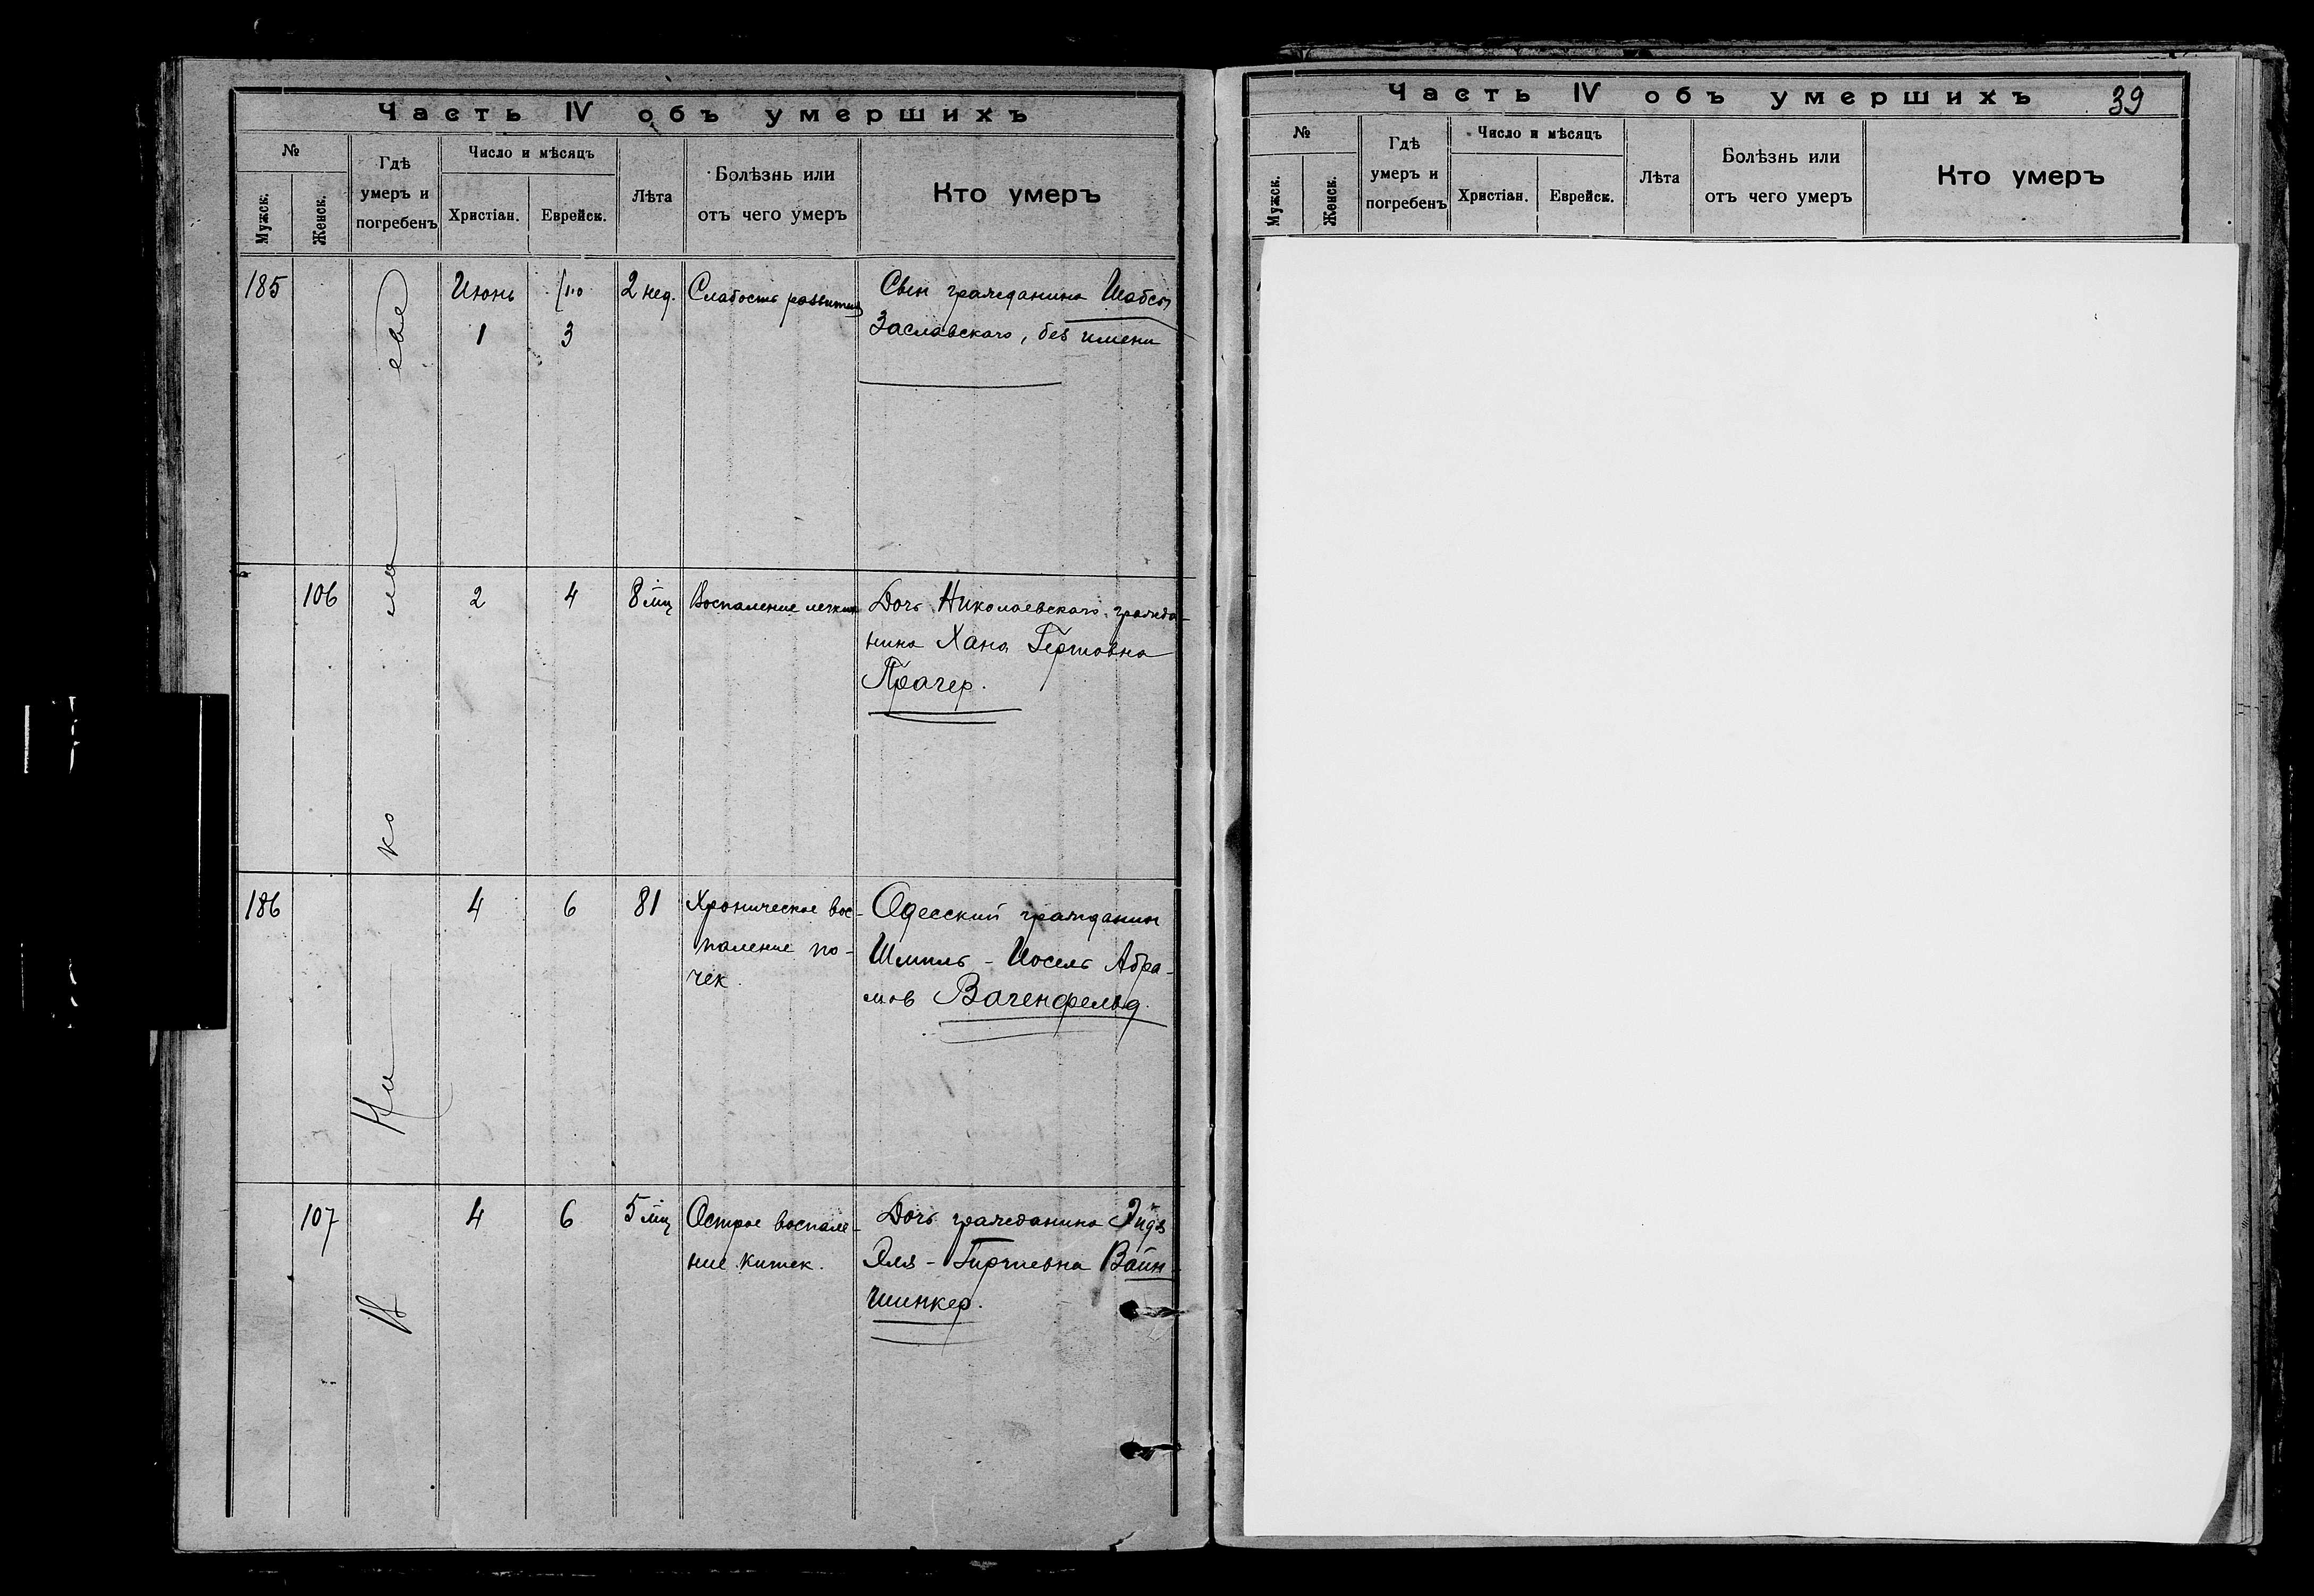 Часть IV объ умершихъ
№
Мужск.
Женск.
Гдѣ
умеръ и
погребенъ
Число и мѣсяцъ
Христіан.
Еврейск.
Лѣта
Болѣзнь или
отъ чего умеръ
Кто умеръ
185
Июнь
1
3
2 нед.
Слабость развития
Сын гражданина Шабсы
Заславскаго, без имени
106
2
4
8 мц
Воспаление легких
Дочь Николаевскаго гражда-
нина Хана Гершовна
Прагер.
186
4
6
81
Хроническое вос-
паление по-
чек.
Одесский гражданин
Шмиль - Иосель Абра-
мов Вагенфельд.
107
4
6
5 мц
Острое воспале-
ние кишек.
Дочь гражданина
Эля - Гиршевна Вайн-
шинкер.
В Николаеве
Часть IV объ умершихъ
39
№
Мужск.
Женск.
Гдѣ
умеръ и
погребенъ
Число и мѣсяцъ
Христіан.
Еврейск.
Лѣта
Болѣзнь или
отъ чего умеръ
Кто умеръ